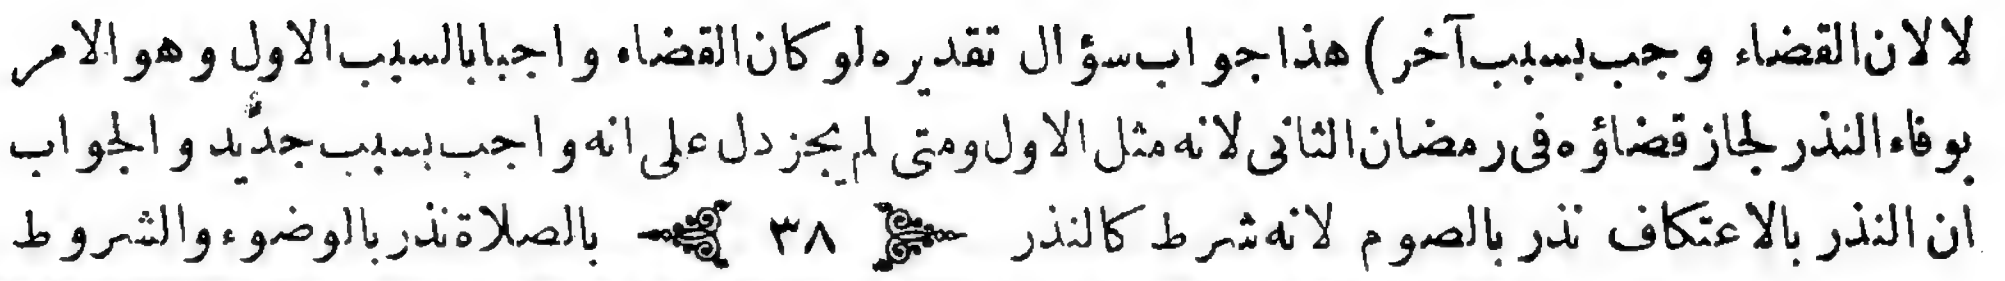 لا لان القضاء وجب بسبب آخر) هذا جواب سؤال تقديره لو كان القضاء واجبا بالسبب الاول وهو الامر
بوفاء النذر لجاز قضاؤه فى رمضان الثانى لانه مثل الاول ومتى لم يجز دل على انه واجب بسبب جديد والجواب
ان النذر بالاعتكاف نذر بالصوم لانه شرط كالنذر ﴿ ٣٨ ﴾ بالصلاة نذر بالوضوء والشروط